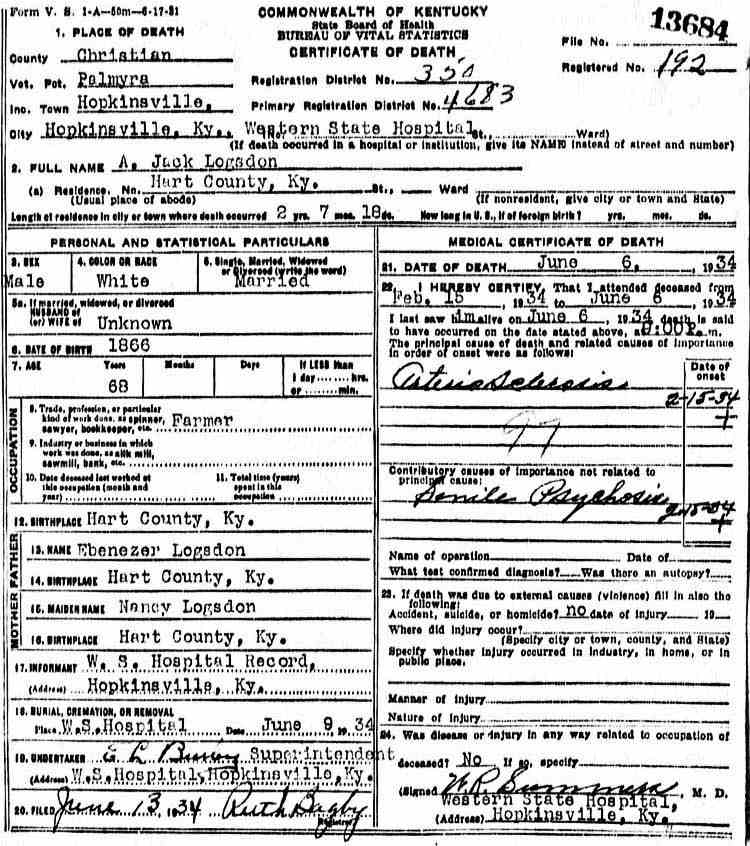 Form V. S. 1-A-50m-6-17-31
COMMONWEALTH OF KENTUCKY
State Board of Health
BUREAU OF VITAL STATISTICS
CERTIFICATE OF DEATH
13684
File No.
Registered No. 192
1. PLACE OF DEATH
County Christian
Vot. Pct. Palmyra
Inc. Town Hopkinsville,
Registration District No. 350
Primary Registration District No. 4683
City Hopkinsville, Ky. No. Western State Hospital St., Ward)
(If death occurred in a hospital or institution, give its NAME instead of street and number)
2. FULL NAME A. Jack Logsdon
(a) Residence. No. Hart County, Ky. St., Ward
(Usual place of abode) (If nonresident, give city or town and State)
Length of residence in city or town where death occurred 2 yrs. 7 mos. 18 ds. How long in U. S., if of foreign birth? yrs. mos. ds.
PERSONAL AND STATISTICAL PARTICULARS
3. SEX Male
4. COLOR OR RACE White
5. Single, Married, Widowed or Divorced (write the word) Married
5a. If married, widowed, or divorced
HUSBAND of
(or) WIFE of Unknown
6. DATE OF BIRTH 1866
7. AGE Years Months Days If LESS than
68 1 day hrs.
or min.
OCCUPATION
8. Trade, profession, or particular
kind of work done, as spinner, Farmer
sawyer, bookkeeper, etc.
9. Industry or business in which
work was done, as silk mill,
sawmill, bank, etc.
10. Date deceased last worked at
this occupation (month and
year)
11. Total time (years)
spent in this
occupation
12. BIRTHPLACE Hart County, Ky.
FATHER
13. NAME Ebenezer Logsdon
14. BIRTHPLACE Hart County, Ky.
MOTHER
15. MAIDEN NAME Nancy Logsdon
16. BIRTHPLACE Hart County, Ky.
17. INFORMANT W. S. Hospital Record,
(Address) Hopkinsville, Ky.
18. BURIAL, CREMATION, OR REMOVAL
Place W.S.Hospital Date June 9, 1934
19. UNDERTAKER E L Superintendent
(Address) W.S.Hospital, Hopkinsville, Ky.
20. FILED June 13, 1934 Ruth Bagby
Registrar
MEDICAL CERTIFICATE OF DEATH
21. DATE OF DEATH June 6, 1934
22. I HEREBY CERTIFY, That I attended deceased from
Feb. 15, 1934 to June 6, 1934
I last saw him alive on June 6, 1934 death is said
to have occurred on the date stated above, at P.m.
The principal cause of death and related causes of importance
in order of onset were as follows:
Date of
onset
Arterio Sclerosis 2-15-34
+
97
Contributory causes of importance not related to
principal cause:
Senile Psychosis 2-15-34
+
Name of operation Date of
What test confirmed diagnosis? Was there an autopsy?
23. If death was due to external causes (violence) fill in also the
following:
Accident, suicide, or homicide? no date of injury 19
Where did injury occur?
(Specify city or town, county, and State)
Specify whether injury occurred in industry, in home, or in
public place.
Manner of injury
Nature of injury
24. Was disease or injury in any way related to occupation of
deceased? No If so, specify
(Signed W. R. Summers, M. D.
Western State Hospital,
(Address) Hopkinsville, Ky.